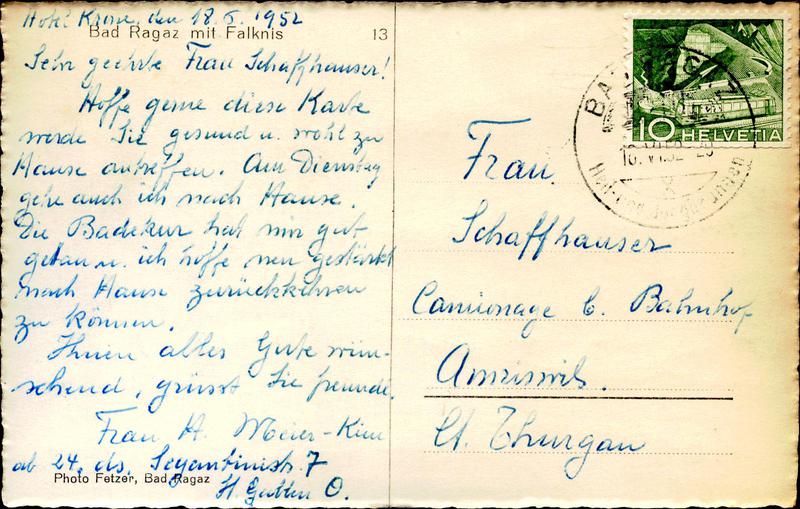 Hotel Krone, den 18.6.1952
Bad Ragaz mit Falknis 13
Sehr geehrte Frau Schaffhauser!
Hoffe gerne diese Karte
werde Sie gesund u. wohl zu
Hause antreffen. Am Dienstag
gehe auch ich nach Hause.
Die Badekur hat mir gut
getan u. ich hoffe neu gestärkt
nach Hause zurückkehren
zu können.
Ihnen alles Gute wün-
schend, grüsst Sie freundl.
Frau A. Meier-
ab 24. ds. Segantinistr. 7
St. Gallen O.
Photo Fetzer, Bad Ragaz
Frau
Schaffhauser
Camionage b. Bahnhof
Amriswil.
Ct. Thurgau
10 HELVETIA
BAD RAGAZ
18.VI.52